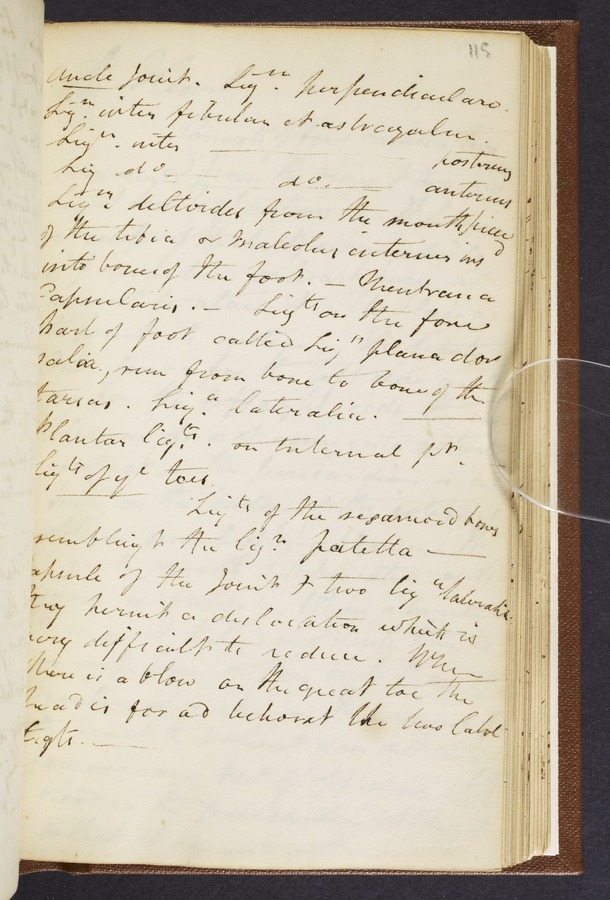 118
Ancle Joint. Lig.m perpendiculare.
Lig.m inter fibulam et astragalum.
Lig.m inter ——— posterius
Lig do. — do. — anterius
Lig.m deltoides from the mouthpiece
of the tibia or Maleolus internus insd
into bones of the foot. — Membrana
Capsularis. — Ligts on the fore
part of foot called Lig.a plana dor
salia, run from bone to bone of the
tarsus. Lig.a lateralia. ———
Plantar ligts. on internal pt.
Ligts of ye toes
Ligts of the sesamoid bones
sembling the lig.m patella —
apsule of the Joint & two lig.a lateralia
they permit a dislocation which is
very difficult to reduce. When
there is a blow on the great toe the
head is forced between the two lateral
Ligts. —